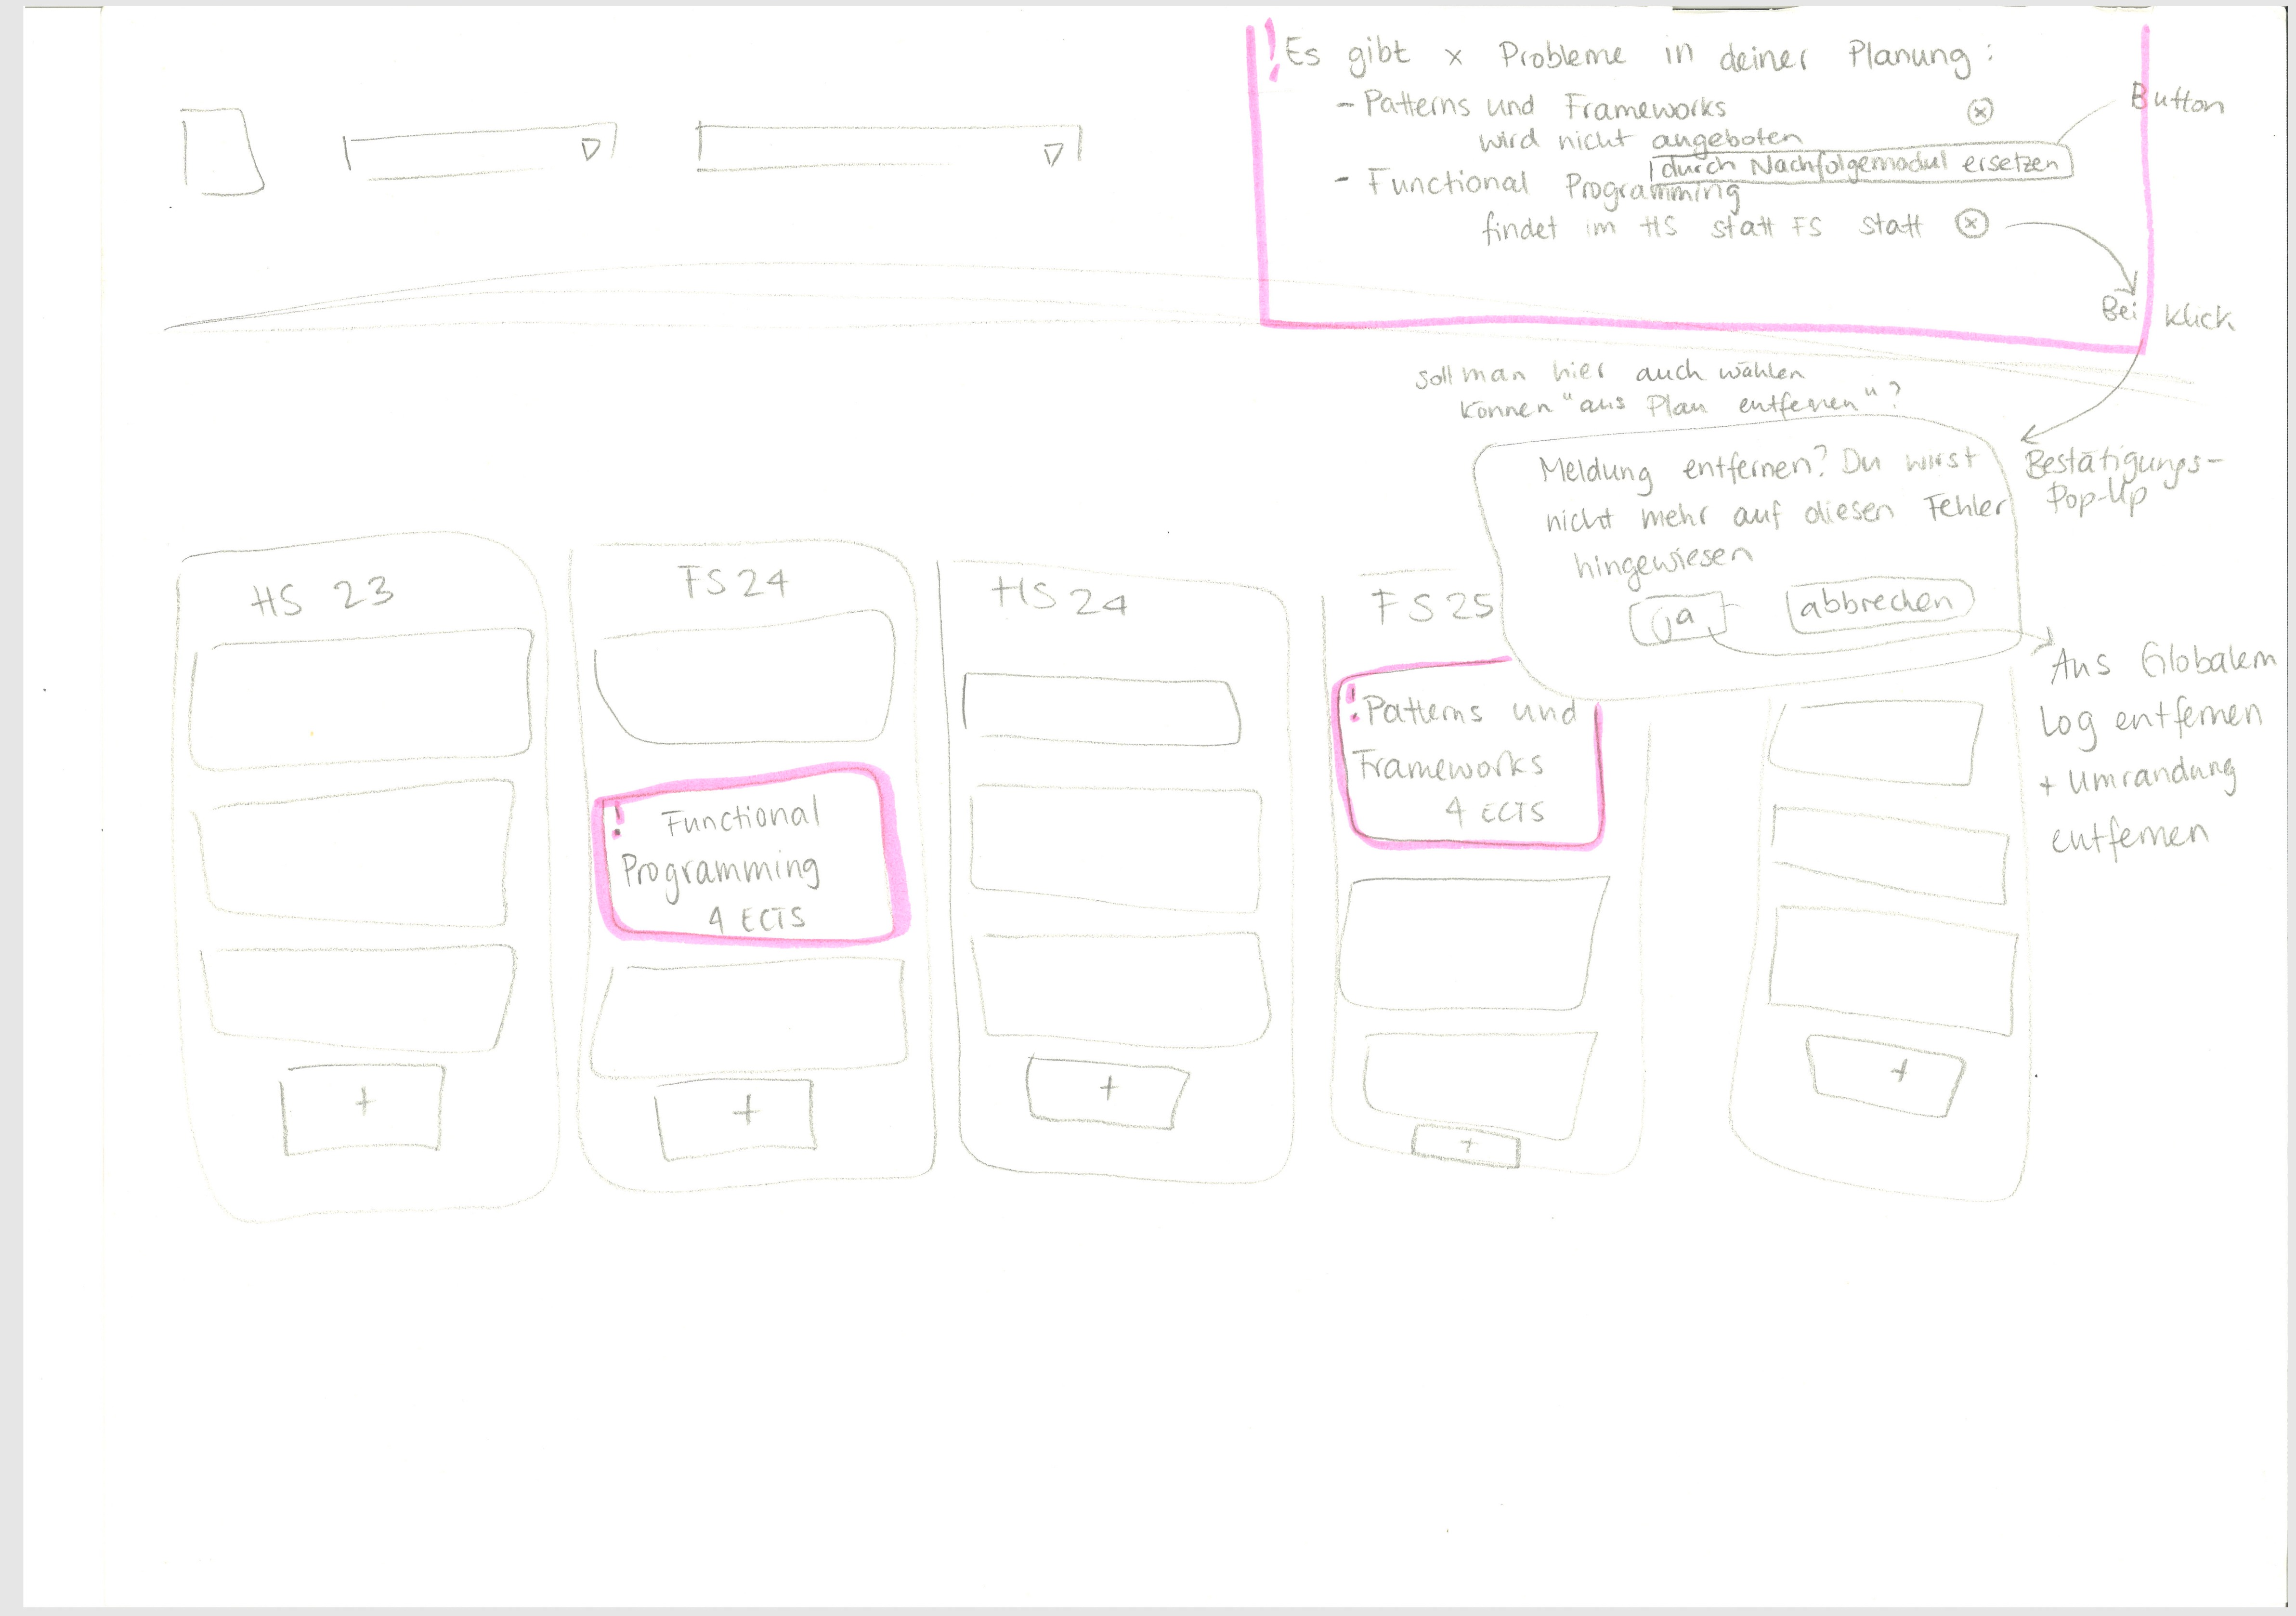 ! Es gibt x Probleme in deiner Planung:
- Patterns und Frameworks ⓧ
wird nicht angeboten
durch Nachfolgemodul ersetzen
Button
- Functional Programming
findet im HS statt FS statt ⓧ
Bei Klick
soll man hier auch wählen
können "aus Plan entfernen"?
Meldung entfernen? Du wirst
nicht mehr auf diesen Fehler
hingewiesen
ja
abbrechen
Bestätigungs-
Pop-Up
Aus Globalem
Log entfernen
+ Umrandung
entfernen
HS 23
+
FS24
! Functional
Programming
4 ECTS
+
HS 24
+
FS25
! Patterns und
Frameworks
4 ECTS
+
+